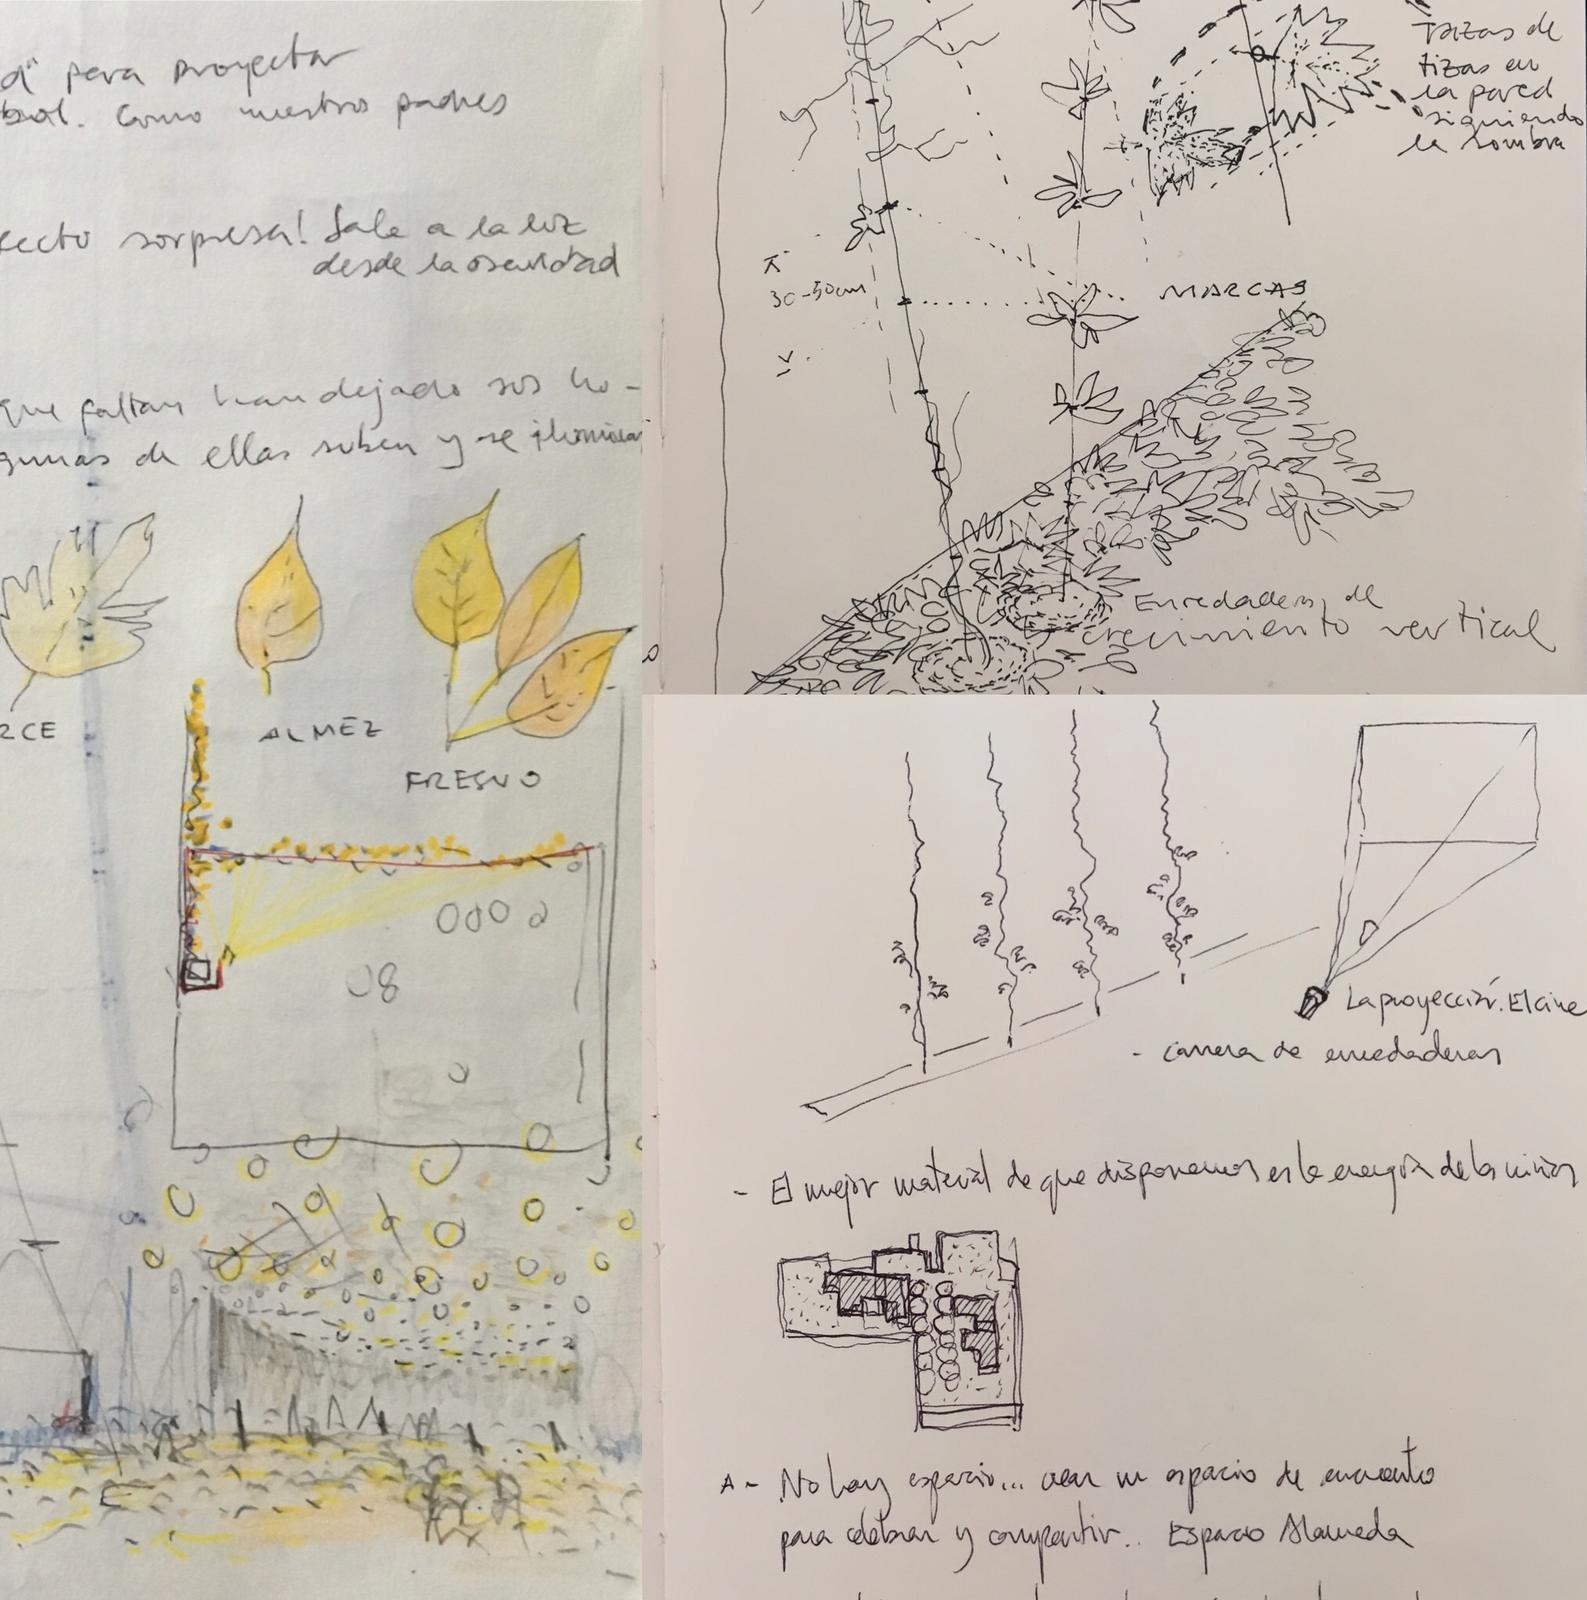 para proyectar
Como nuestros padres
sorpresa! Sale a la luz
desde la oscuridad
que faltan han dejado sus ho-
de ellas suben y se iluminan
ALMEZ
FRESNO
Trazas de
tizas en
la pared
siguiendo
la sombra
30-50cm
MARCAS
Enredaderas de
crecimiento vertical
La proyección. El cine
- carrera de enredaderas
- El mejor material de que disponemos es la energía de los niños
A - No hay espacio... crear un espacio de encuentro
para celebrar y compartir.. Espacio Alameda